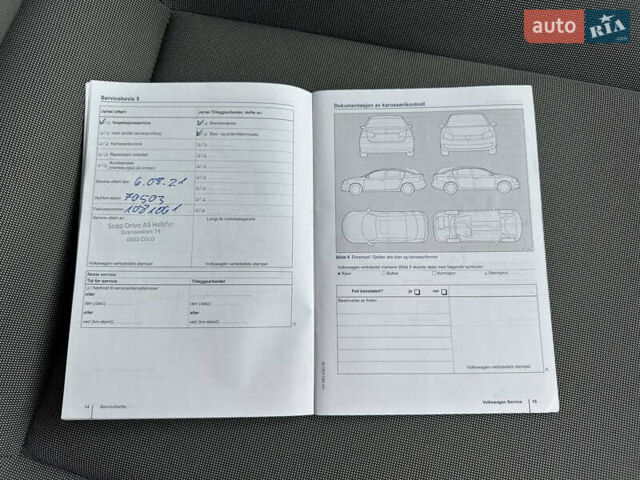 auto RIA.com
Servicebevis 5
Ja/nei Utført:
Ja/nei Tilleggsarbeider, skifte av:
Inspeksjonsservice
Bremsevæske
med utvidet serviceomfang
Støv- og pollenfilterinnsats
Karosserikontroll
Reparasjon anbefalt
Service utført den: 6.08.21
ved km-stand: 79503
Fakturanummer: 1081001
Service utført av:
LongLife mobilitetsgaranti:
Snap Drive AS Helsfyr
Grenseveien 74
0663 OSLO
Volkswagen-verkstedets stempel
Volkswagen-verkstedets stempel
Neste service
Tid for service
Tilleggsarbeider
I henhold til serviceintervallviseren
eller
den (dato):
den (dato):
eller
eller
ved (km-stand):
ved (km-stand):
14 Servicehefte
Dokumentasjon av karosserikontroll
Bilde 6 Eksempel: Gjelder alle biler og karosseriformer
Volkswagen-verkstedet markerer Bilde 6 skadde deler med følgende symboler:
Riper
Bulker
Korrosjon
Steinsprut
Feil konstatert? ja nei
Beskrivelse av feilen:
Volkswagen-verkstedets stempel
Volkswagen Service 15